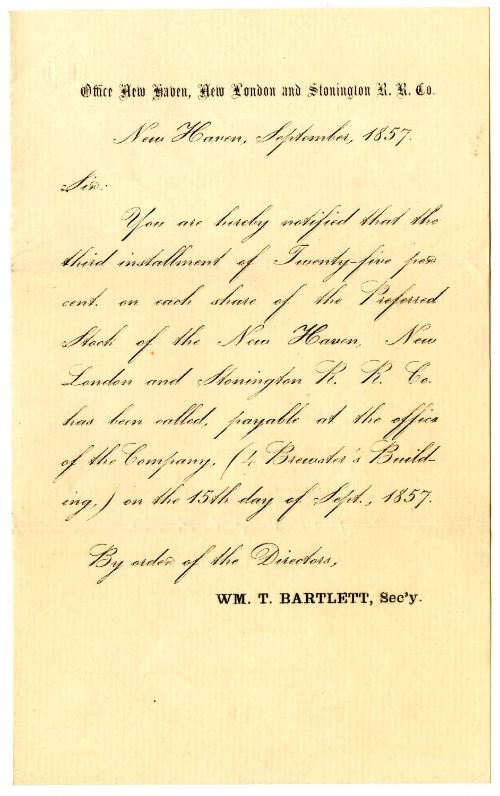 Office New Haven, New London and Stonington R. R. Co.
New Haven, September, 1857.
Sir:
You are hereby notified that the
third installment of Twenty-five per
cent. on each share of the Preferred
Stock of the New Haven, New
London and Stonington R. R. Co.
has been called, payable at the office
of the Company, (4 Brewster's Build-
ing,) on the 15th day of Sept., 1857.
By order of the Directors,
WM. T. BARTLETT, Sec'y.